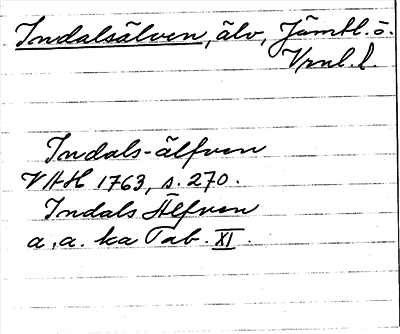 Indalsälven, älv, Jämtl. o.
Vrnl. l.
Indals-älfven
VHH 1763, s. 270.
Indals Älfven
a, a. ka Tab. XI.